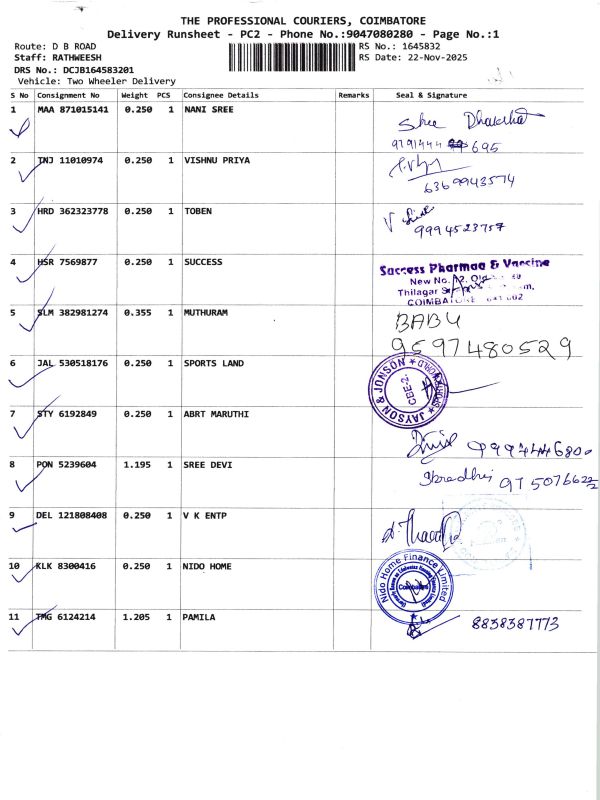 THE PROFESSIONAL COURIERS, COIMBATORE
Delivery Runsheet - PC2 - Phone No.:9047080280 - Page No.:1
Route: D B ROAD
RS No.: 1645832
Staff: RATHWEESH
RS Date: 22-Nov-2025
DRS No.: DCJB164583201
Vehicle: Two Wheeler Delivery
S No Consignment No Weight PCS Consignee Details Remarks Seal & Signature
1 MAA 871015141 0.250 1 NANI SREE
Sree
695
2 TNJ 11010974 0.250 1 VISHNU PRIYA
6369943574
3 HRD 362323778 0.250 1 TOBEN
9994523757
4 HSR 7569877 0.250 1 SUCCESS
Success Pharmaa & Vaccine
New No.
Thilagar
COIMBATORE 641 002
5 SLM 382981274 0.355 1 MUTHURAM
BABU
9597480529
6 JAL 530518176 0.250 1 SPORTS LAND
JAYSON & JONSON
CBE-2.
7 STY 6192849 0.250 1 ABRT MARUTHI
8 PON 5239604 1.195 1 SREE DEVI
9 DEL 121808408 0.250 1 V K ENTP
10 KLK 8300416 0.250 1 NIDO HOME
Nido Home Finance Limited
Coimbatore
11 TMG 6124214 1.205 1 PAMILA
8838387773